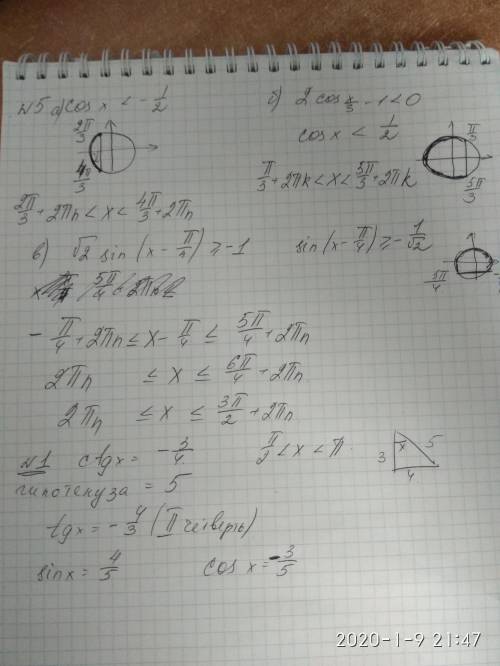 №5 а) cos x < -1/2
2π/3
4π/3
2π/3 + 2πn < x < 4π/3 + 2πn
б) 2 cos x/3 - 1 < 0
cos x < 1/2
π/3
5π/3
π/3 + 2πk < x < 5π/3 + 2πk
в) √2 sin (x - π/4) ≥ -1
sin (x - π/4) ≥ -1/√2
5π/4
- π/4 + 2πn ≤ x - π/4 ≤ 5π/4 + 2πn
2πn ≤ x ≤ 6π/4 + 2πn
2πn ≤ x ≤ 3π/2 + 2πn
№1 ctg x = -3/4 π/2 < x < π
3 x 5
4
гипотенуза = 5
tg x = -4/3 (II четверть)
sin x = 4/5 cos x = -3/5
2020-1-9 21:47